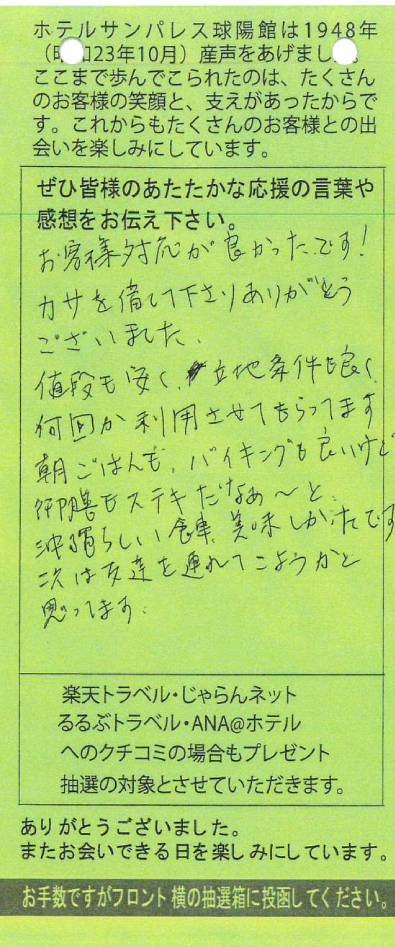 ホテルサンパレス球陽館は1948年
（昭和23年10月）産声をあげました。
ここまで歩んでこられたのは、たくさん
のお客様の笑顔と、支えがあったからで
す。これからもたくさんのお客様との出
会いを楽しみにしています。
ぜひ皆様のあたたかな応援の言葉や
感想をお伝え下さい。
お客様対応が良かったです!
カサを借して下さりありがとう
ございました、
値段も安く、立地条件も良く、
何回か利用させてもらってます
朝ごはんも、バイキングも良いけど
御膳もステキだなあ〜と、
沖縄らしい食事、美味しかったです
次は友達を連れてこようかと
思ってます.
楽天トラベル・じゃらんネット
るるぶトラベル・ANA@ホテル
へのクチコミの場合もプレゼント
抽選の対象とさせていただきます。
ありがとうございました。
またお会いできる日を楽しみにしています。
お手数ですがフロント横の抽選箱に投函してください。